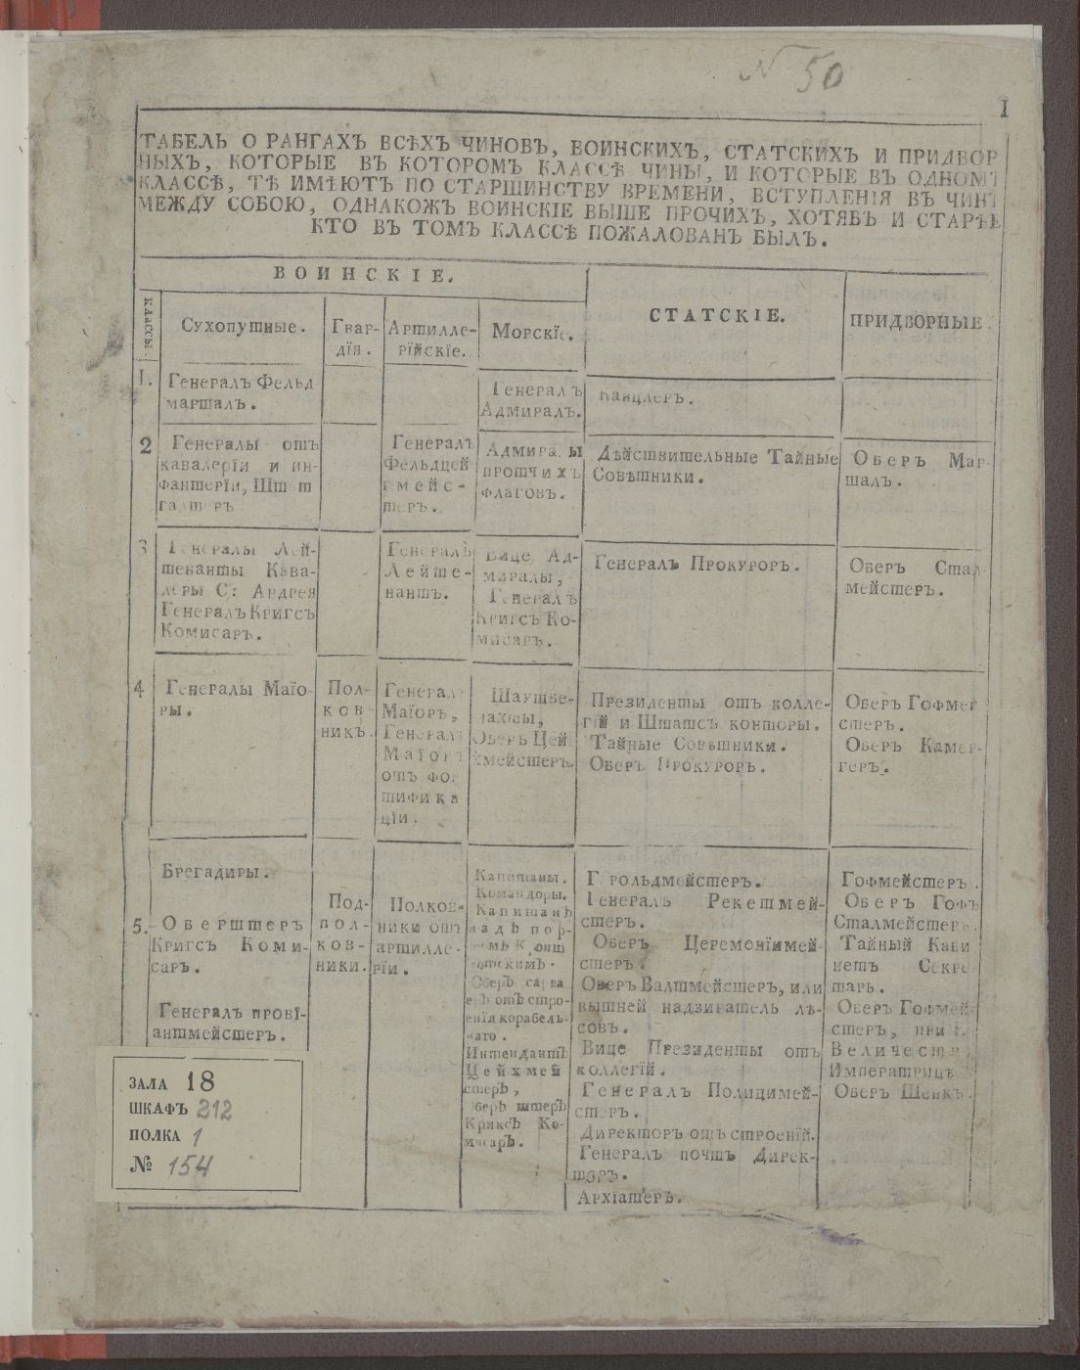 N 50
1
ТАБЕЛЬ О РАНГАХЪ ВСѢХЪ ЧИНОВЪ, ВОИНСКИХЪ, СТАТСКИХЪ И ПРИДВОР
НЫХЪ, КОТОРЫЕ ВЪ КОТОРОМЪ КЛАССѢ ЧИНЫ, И КОТОРЫЕ ВЪ ОДНОМЪ
КЛАССѢ, ТѢ ИМѢЮТЪ ПО СТАРШИНСТВУ ВРЕМЕНИ, ВСТУПЛЕНІЯ ВЪ ЧИНЪ
МЕЖДУ СОБОЮ, ОДНАКОЖЪ ВОИНСКІЕ ВЫШЕ ПРОЧИХЪ, ХОТЯБЪ И СТАРѢЕ
КТО ВЪ ТОМЪ КЛАССѢ ПОЖАЛОВАНЪ БЫЛЪ.
ВОИНСКІЕ.
СТАТСКІЕ.
ПРИДВОРНЫЕ.
Классы.
Сухопутные.
Гвар-
дїя.
Артилле-
рїйскіе.
Морскїе.
1.
Генералъ Фельд
маршалъ.
Генералъ
Адмиралъ.
Канцлеръ.
2
Генералы отъ
кавалерїи и ин-
фантерїи, Шт т
галтеръ
Генералъ
Фельдцей
гмейс-
теръ.
Адмиралы
протчихъ
флаговъ.
Дѣйствительные Тайные
Совѣтники.
Оберъ Мар-
шалъ.
3
Генералы Лей-
тенанты Кава-
леры С: Андрея
Генералъ Кригсъ
Комисаръ.
Генералъ
Лейте-
нантъ.
Вице Ад-
миралы,
Генералъ
Кригсъ Ко-
мисаръ.
Генералъ Прокуроръ.
Оберъ Стал
мейстеръ.
4
Генералы Маїо-
ры.
Пол-
ков-
никъ.
Генералъ
Маїоръ,
Генералъ
Маїоръ
отъ фор
тифика
цїи.
Шаутбе-
нахты,
Оберъ Цей
хмейстеръ.
Президенты отъ колле-
гїй и Штатсъ конторы.
Тайные Совѣтники.
Оберъ Прокуроръ.
Оберъ Гофмей
стеръ.
Оберъ Камер-
геръ.
5.
Брегадиры.
Оберштеръ
Кригсъ Коми-
саръ.
Генералъ провї-
антмейстеръ.
Под-
пол-
ков-
ники.
Полков-
ники отъ
артилле-
рїи.
Капитаны.
Командоры.
Капитанъ
надъ пор-
томъ Крон
отскимъ.
Оберъ сарва
еръ отъ стро-
енїя корабель-
наго.
Интендантъ
Цейхмей
стеръ,
Оберъ штеръ
Кригсъ Ко-
мисаръ.
Герольдмейстеръ.
Генералъ Рекетмей-
стеръ.
Оберъ Церемонїимей-
стеръ.
Оберъ Валтмейстеръ, или
вышней надзиратель лѣ-
совъ.
Вице Президенты отъ
коллегїй.
Генералъ Полицимей-
стеръ.
Директоръ отъ строенїй.
Генералъ почтъ Дирек-
торъ.
Архіатеръ.
Гофмейстеръ.
Оберъ Гофъ
Сталмейстеръ.
Тайный Каби
нетъ Секре-
тарь.
Оберъ Гофмей-
стеръ, при Ея
Величествѣ
Императрицѣ
Оберъ Шенкъ.
ЗАЛА 18
ШКАФЪ 212
ПОЛКА 1
№ 154